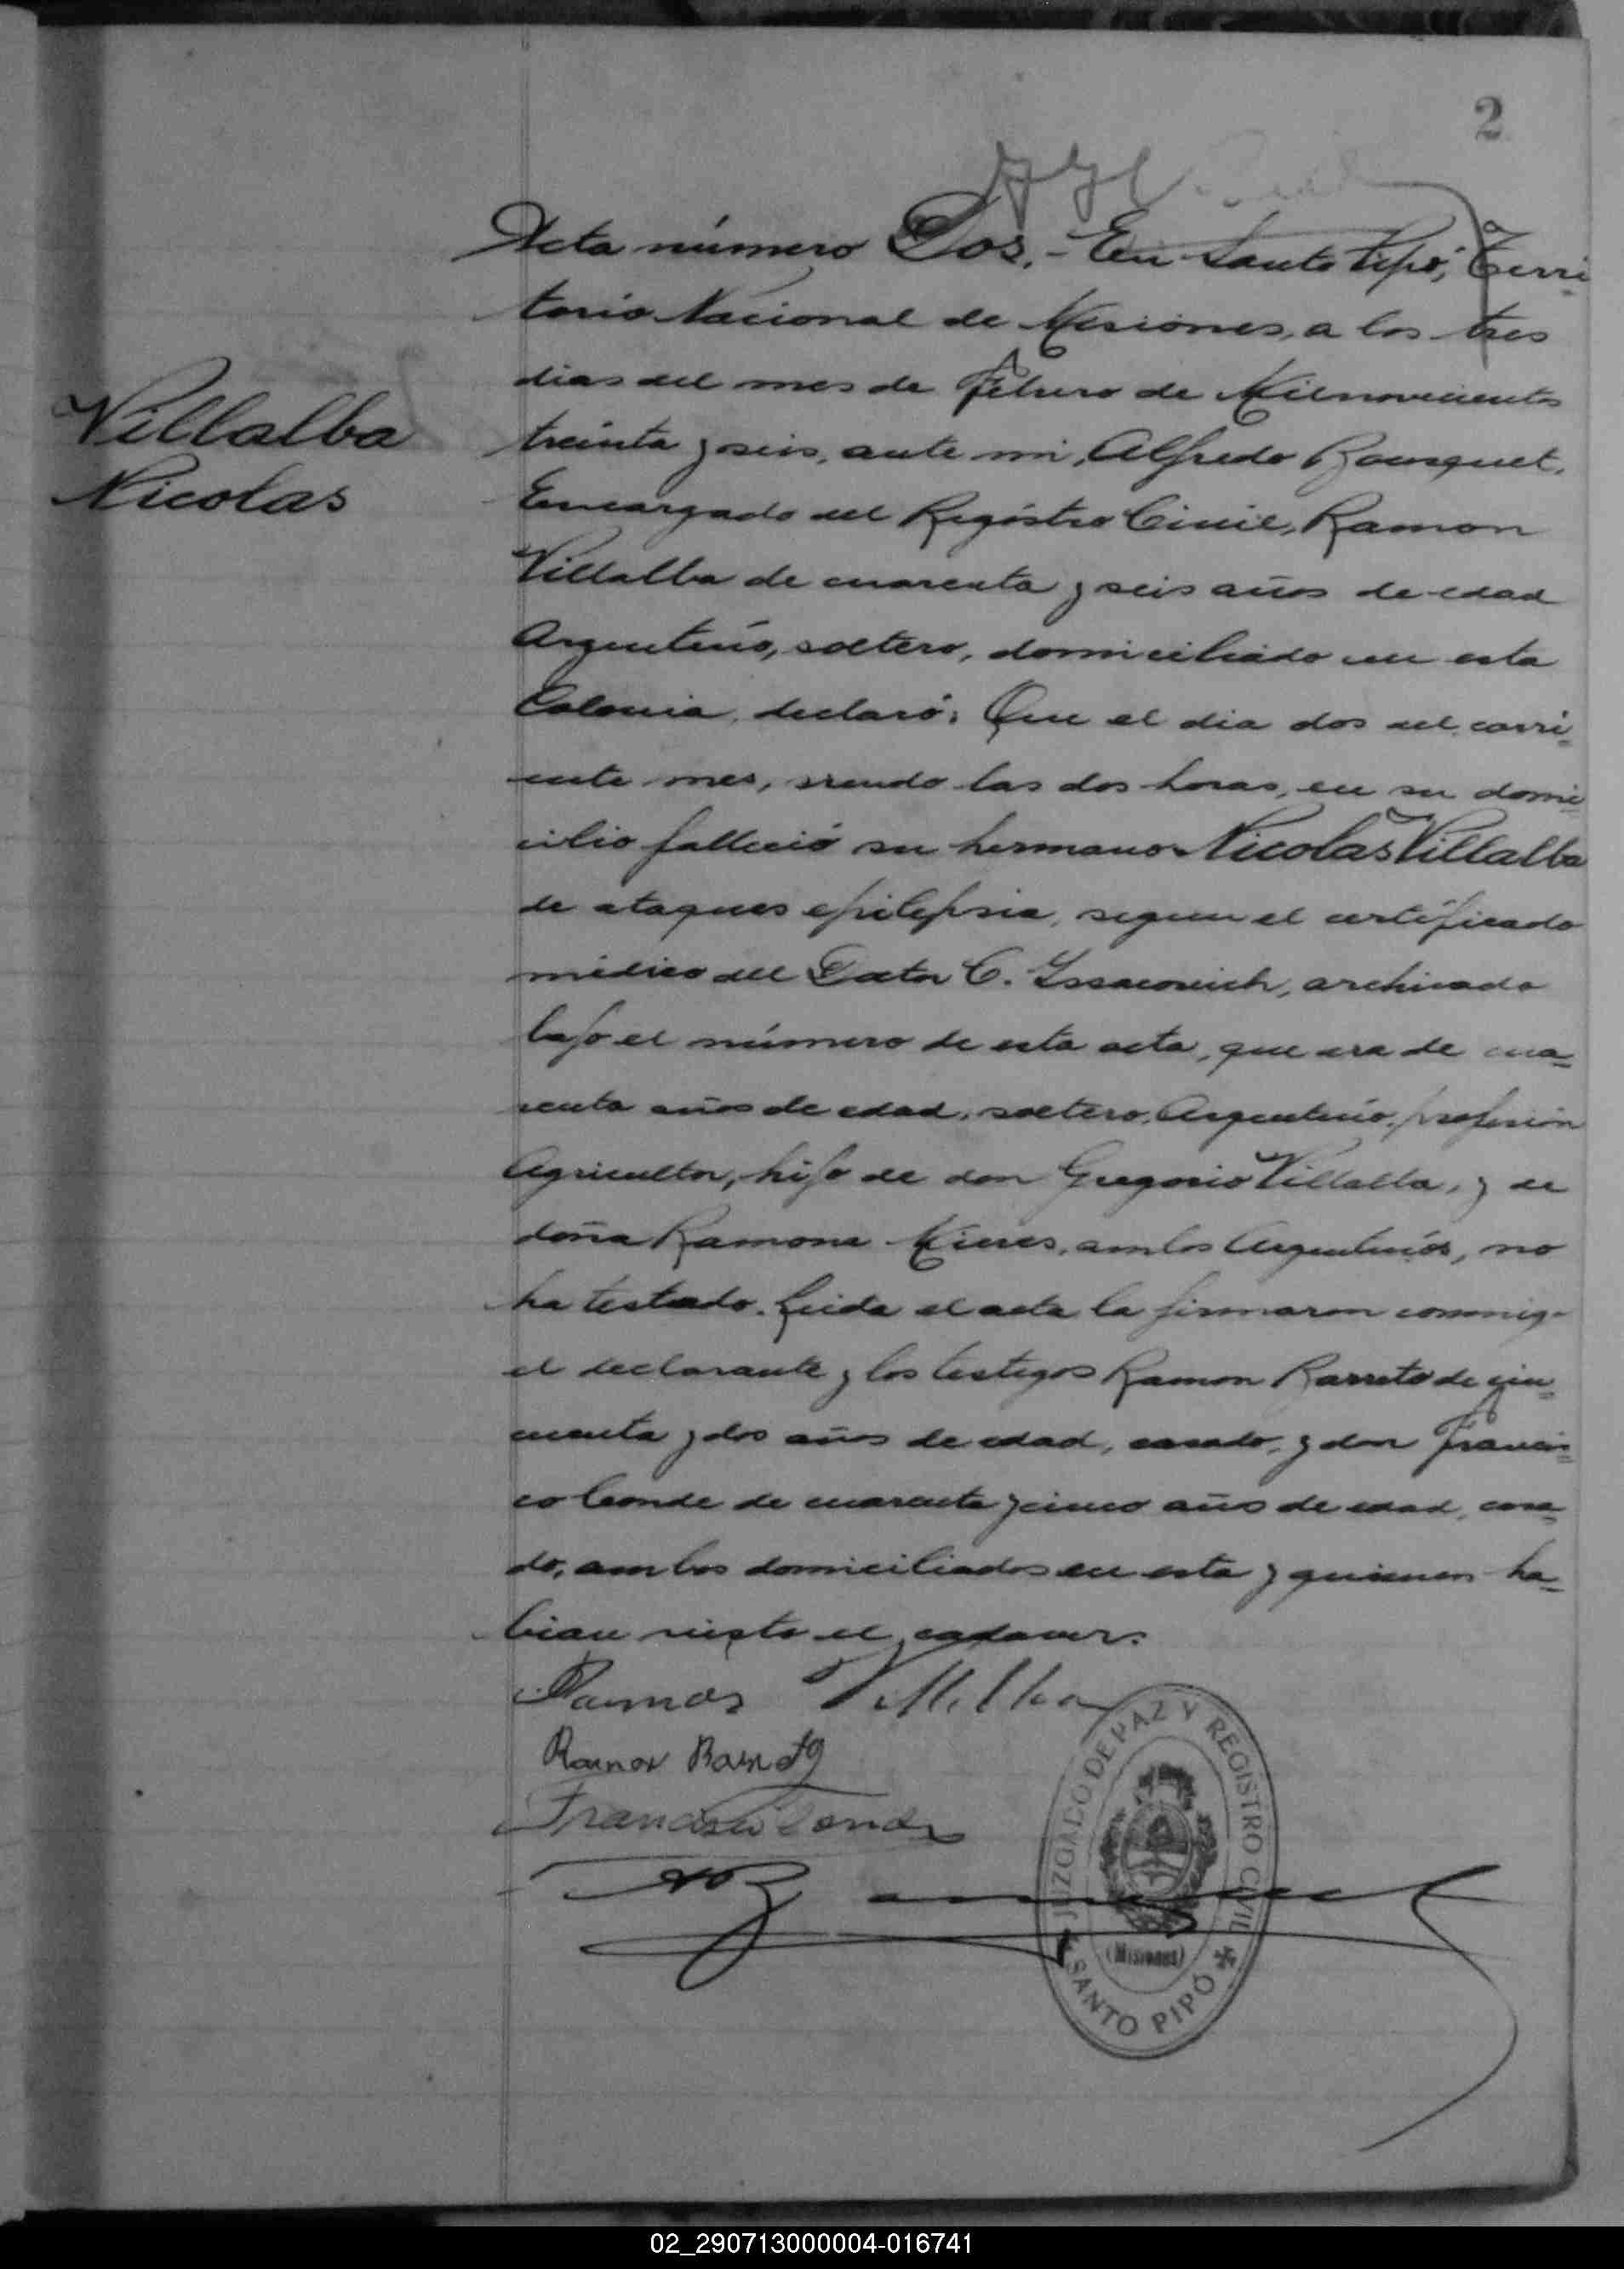 2
Acta número Dos.- En Santo Pipó, Terri
torio Nacional de Misiones, a los tres
dias del mes de Febrero de Milnovecientos
Villalba
treinta y seis, ante mi, Alfredo Bousquet,
Nicolas
Encargado del Registro Civil, Ramon
Villalba de cuarenta y seis años de edad
Argentino, soltero, domiciliado en esta
Colonia, declaró: Que el dia dos del corri
ente mes, siendo las dos horas, en su domi
cilio falleció su hermano Nicolas Villalba
de ataques epilepsia, segun el certificado
médico del Doctor C. Issacovich, archivado
bajo el número de esta acta, que era de cua
renta años de edad, soltero, Argentino, profesion
Agricultor, hijo de don Gregorio Villalba, y de
doña Ramona Mieres, ambos Argentinos, no
ha testado. Leida el acta la firmaron conmigo
el declarante y los testigos Ramon Barreto de cin
cuenta y dos años de edad, casado, y don Francis
co Conde de cuarenta y cinco años de edad, casa
do, ambos domiciliados en esta y quienes ha
bian visto el cadaver.
Ramon Villalba
Ramon Barreto
Francisco Conde
JUZGADO DE PAZ Y REGISTRO CIVIL
(Misiones)
SANTO PIPÓ
02_290713000004-016741